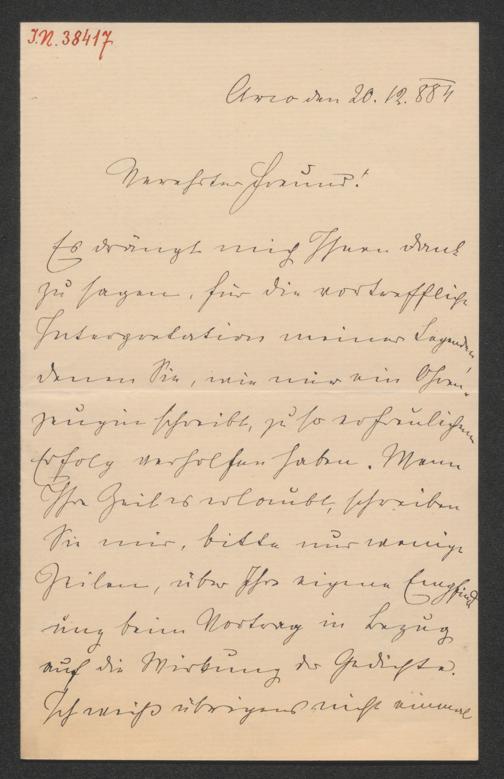 I.N. 38417
Arco den 20. 12. 884
Verehrter Freund!
Es drängt mich Ihnen Dank
zu sagen, für die vortreffliche
Interpretation meiner Legenden
denen Sie, wie mir ein Ohren-
zeugin schreibt, zu so erfreulichem
Erfolg verholfen haben. Wenn
Ihre Zeil es erlaubt, schreiben
Sie mir, bitte nur wenige
Zeilen, über Ihre eigene Empfind
ung beim Vortrag in Bezug
auf die Wirkung der Gedichte.
Ich weiß übrigens nicht einmal